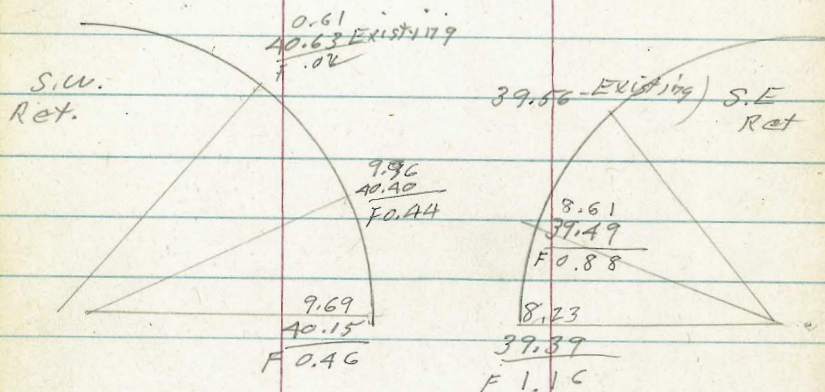 0.61
40.63 Existing
F .02
S.W.
Ret.
39.56 - Existing)
S.E
Ret
9.96
40.40
F 0.44
8.61
39.49
F 0.88
9.69
40.15
F 0.46
8.23
39.39
F 1.16